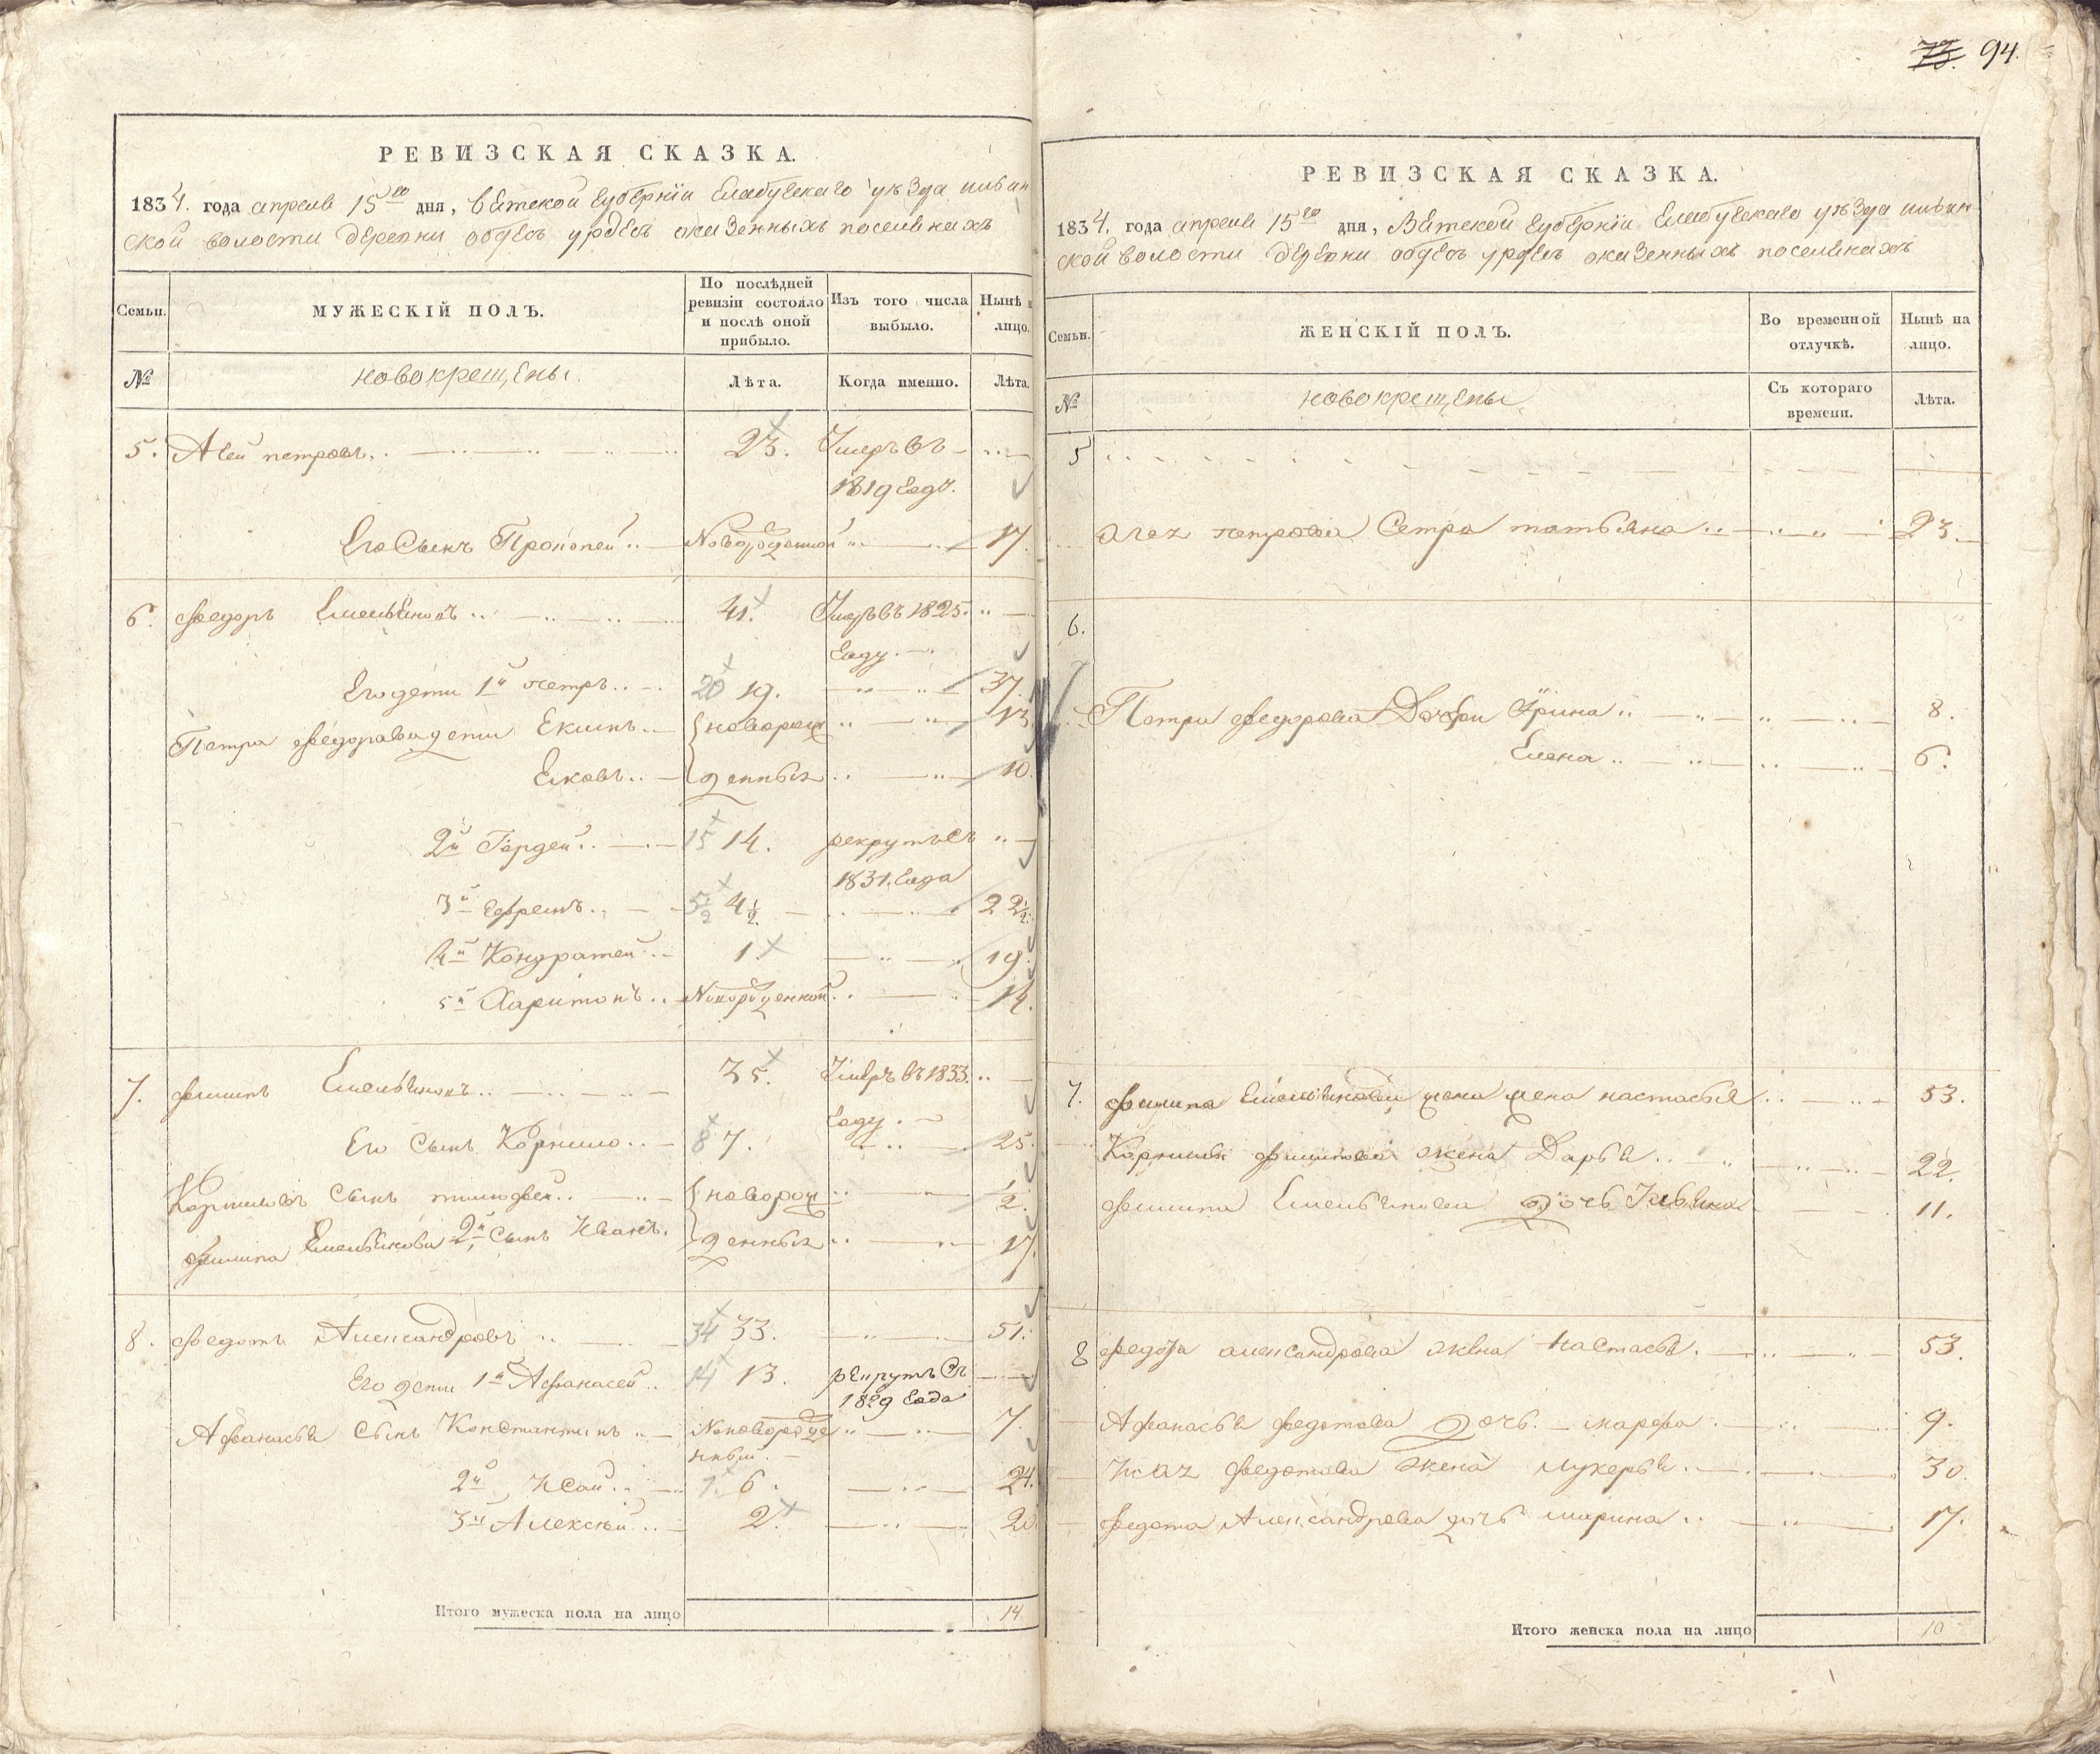 73. 94.
РЕВИЗСКАЯ СКАЗКА.
1834. года апреля 15го дня, Вятской губернїи Елабугскаго уѣзда ильин
ской волости деревни
Семьи. МУЖЕСКІЙ ПОЛЪ. По послѣдней ревизіи состояло и послѣ оной прибыло. Изъ того числа выбыло. Нынѣ н лицо.
№ новокрещены. Лѣта. Когда именно. Лѣта.
5. Агей петровъ 23. Умеръ въ
1819 году.
Его Сынъ Прокопей Новорожденной 17.
6. Федоръ Емельяновъ 41. Умеръ въ 1825.
году
Его дети 1й петръ 20 19. 37.
Петра федорова дети Екимъ новорож 13.
Яковъ денныхъ 10.
2й Гордей 15 14. рекрутъ съ
1831. года
3й Ефремъ 5½ 4½. 22½.
4й Кондратей 1. 19.
5й Харитонъ Новорожденной 14.
7. филипъ Емельяновъ 35. Умеръ въ 1833.
году
Его Сынъ Корнило 8 7. 25.
Корниловъ Сынъ тимофей новорож 2.
филипа Емельянова 2й Сынъ Иванъ. денныхъ 17.
8. федотъ Александровъ 34 33. 51.
Его дети 1й Афанасей 14 13. рекрутъ съ
1829 года
Афанасья Сынъ Константинъ Новорожде 7.
нный
2й Исай 7. 6. 24.
3й Алексѣй 2. 20
Итого мужеска пола на лицо 14
РЕВИЗСКАЯ СКАЗКА.
1834. года апреля 15го дня, Вятской губернїи Елабугскаго уѣзда ильин
ской волости деревни
Семьи. ЖЕНСКІЙ ПОЛЪ. Во временной отлучкѣ. Нынѣ на лицо.
№ новокрещены Съ котораго времени. Лѣта.
5
Агея петрова Сестра татьяна 23.
6.
Петра федорова Дочери Ирина 8.
Елена 6.
7. филипа Емельянова жена настасья 53.
Корнилы филипова жена Дарья 22.
филипа Емельянова дочь Ульяна 11.
8 федота александрова жена настасья 53.
Афанасья федотова дочь марфа 9.
Исая федотова жена лукерья 30.
федота Александрова дочь марина 17.
Итого женска пола на лицо 10